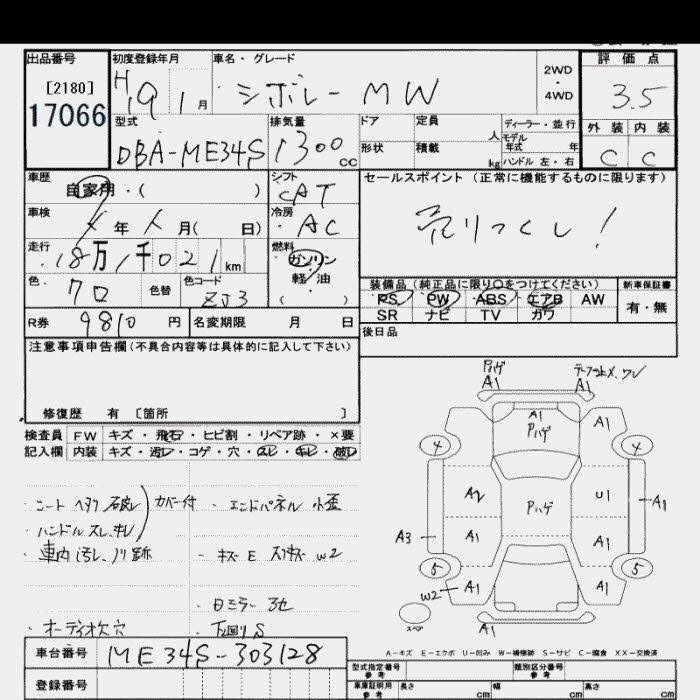 出品番号
[2180]
17066
初度登録年月
H19 1月
車名・グレード
シボレー MW
2WD
・
4WD
評価点
3.5
外装 内装
C C
型式
DBA-ME34S
排気量
1300 cc
ドア
定員 人
形状
積載 kg
ディーラー・並行
モデル
年式 年
ハンドル 左・右
車歴
自家用・( )
シフト
CAT
セールスポイント (正常に機能するものに限ります)
売りつくし!
車検
年 月( 日)
冷房
AC
走行
18万1千021km
燃料
ガソリン
軽・油
( )
色
クロ
色替
色コード
ZJ3
装備品(純正品に限り○をつけてください)
PS PW ABS エアB AW
SR ナビ TV カワ
新車保証書
有・無
R券 9810円
名変期限 月 日
後日品
注意事項申告欄(不具合内容等は具体的に記入して下さい)
修復歴 有 〔箇所 〕
検査員 FW キズ・飛石・ヒビ割・リペア跡・×要
記入欄 内装 キズ・汚レ・コゲ・穴・スレ・キレ・破レ
・シート ヘタリ 破レ カバー付
・ハンドル スレ、キレ
・車内 汚レ、ノリ跡
・オーディオ欠 穴
・エンドパネル 小歪
・キズ E スリキズ W2
・下回り S
Pハゲ
A1
A1
A1
Pハゲ
A1
4
4
A2
Pハゲ
U1
A1
A3
A1
A1
5
5
W2
A1
A1
スペア
A1
A-キズ E-エクボ U-凹み W-補修跡 S-サビ C-腐食 XX-交換済
車台番号 ME34S-303128
登録番号
型式指定番号
参考
類別区分番号
参考
車庫証明用
参考
長さ cm
幅 cm
高さ cm